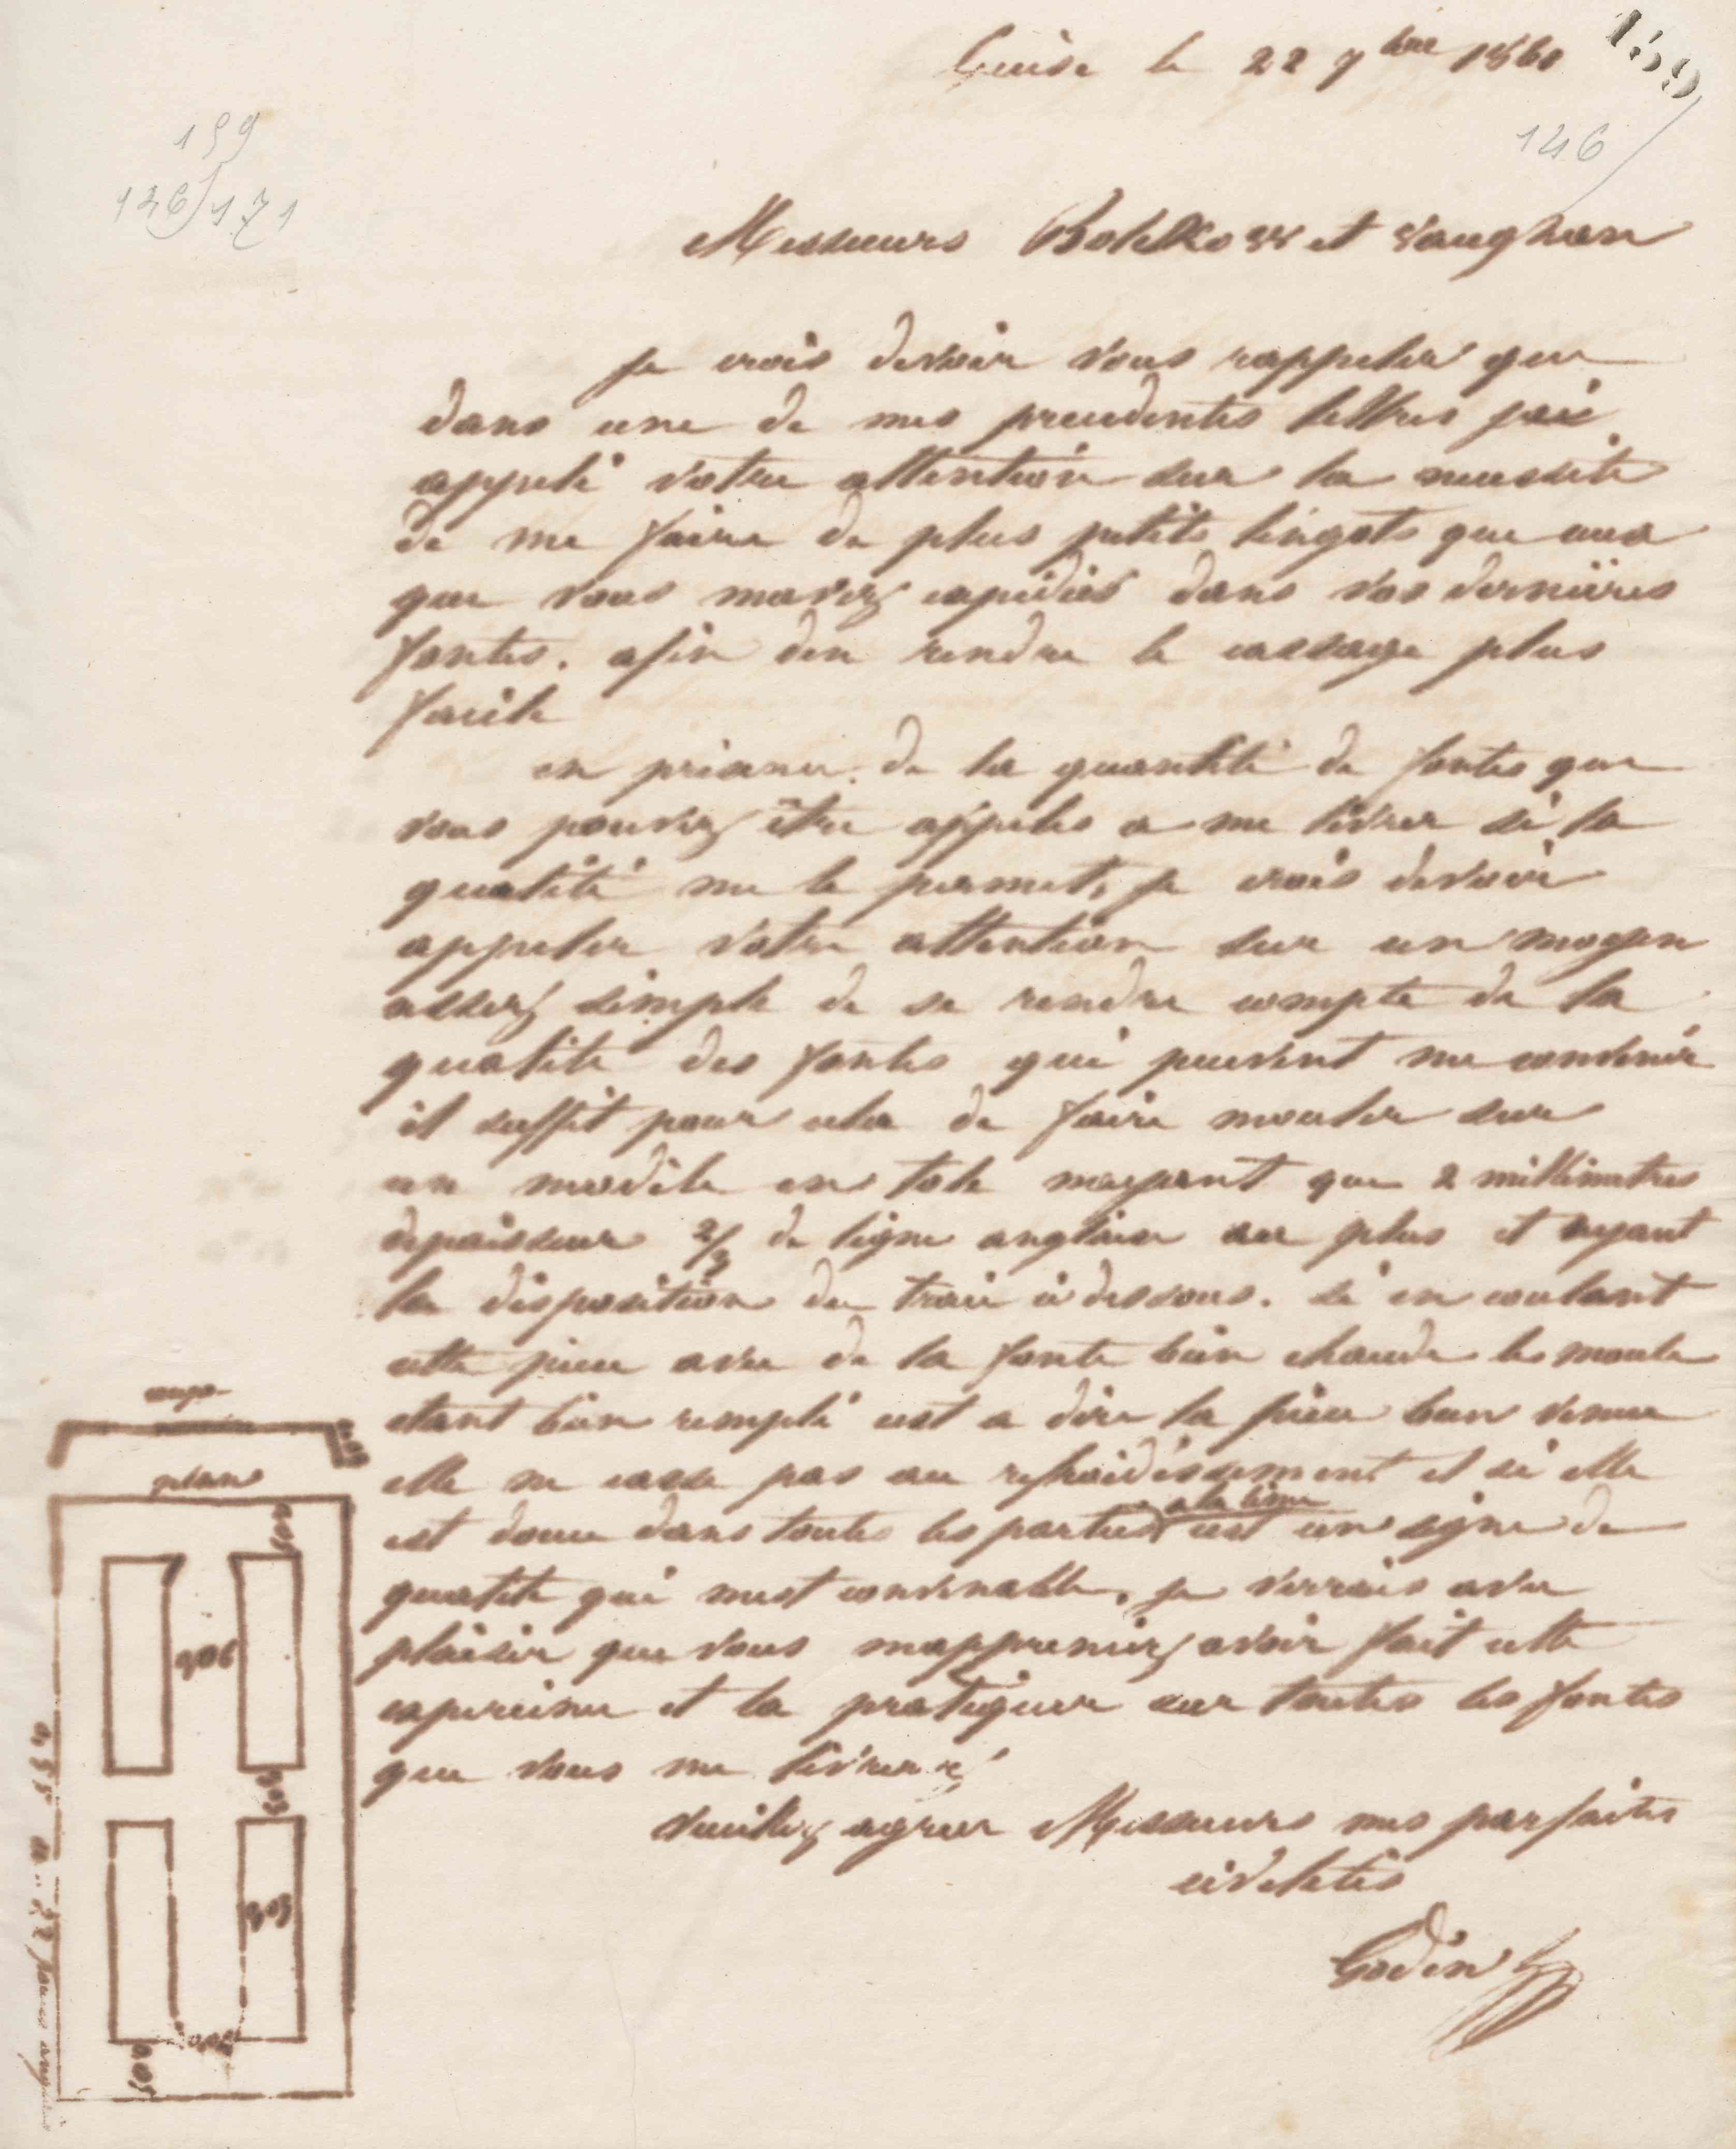 Guise le 22 7bre 1860
159
146
199
126/171
Messieurs Bolckow et Vaughan
je crois devoir vous rappeler que
dans une de mes precedentes lettres jai
appelé votre attention sur la necessité
de me faire de plus petits lingots que ceux
que vous mavez expediés dans vos dernières
fontes. afin den rendre le cassage plus
facile
en presence de la quantité de fontes que
vous pouvez être appelés a me livrer si la
qualité me le permet, je crois devoir
appeler votre attention sur un moyen
assez simple de se rendre compte de la
qualité des fontes qui peuvent me convenir
il suffit pour cela de faire mouler sur
un modèle en tole nayant que 2 millimetres
depaisseur 2/3 de ligne anglaise au plus et ayant
la disposition du tracé ci dessous. si en coulant
cette piece avec de la fonte bien chaude le moule
etant bien rempli cest a dire la piece bien venue
elle ne casse pas au refroidissement et si elle
a la lime
est douce dans toutes les parties cest un signe de
qualité qui mest convenable, je verrais avec
plaisir que vous mappreniez avoir fait cette
experience et la pratiquer sur toutes les fontes
que vous me livrerez
veuillez agreer Messieurs mes parfaites
civilités
Godin
coupe
plan